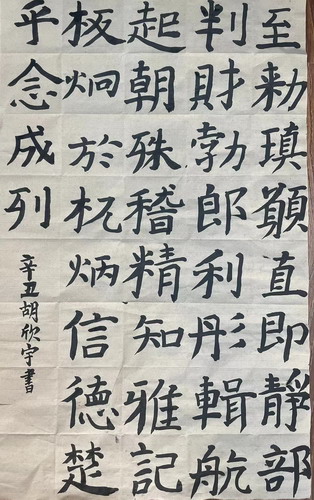 至勑瑱顓直即靜部
判財勃郎利彤輯航
起朝殊稽精知雅記
板炯於杌炳信德楚
乎念成列
辛丑胡欣宇書